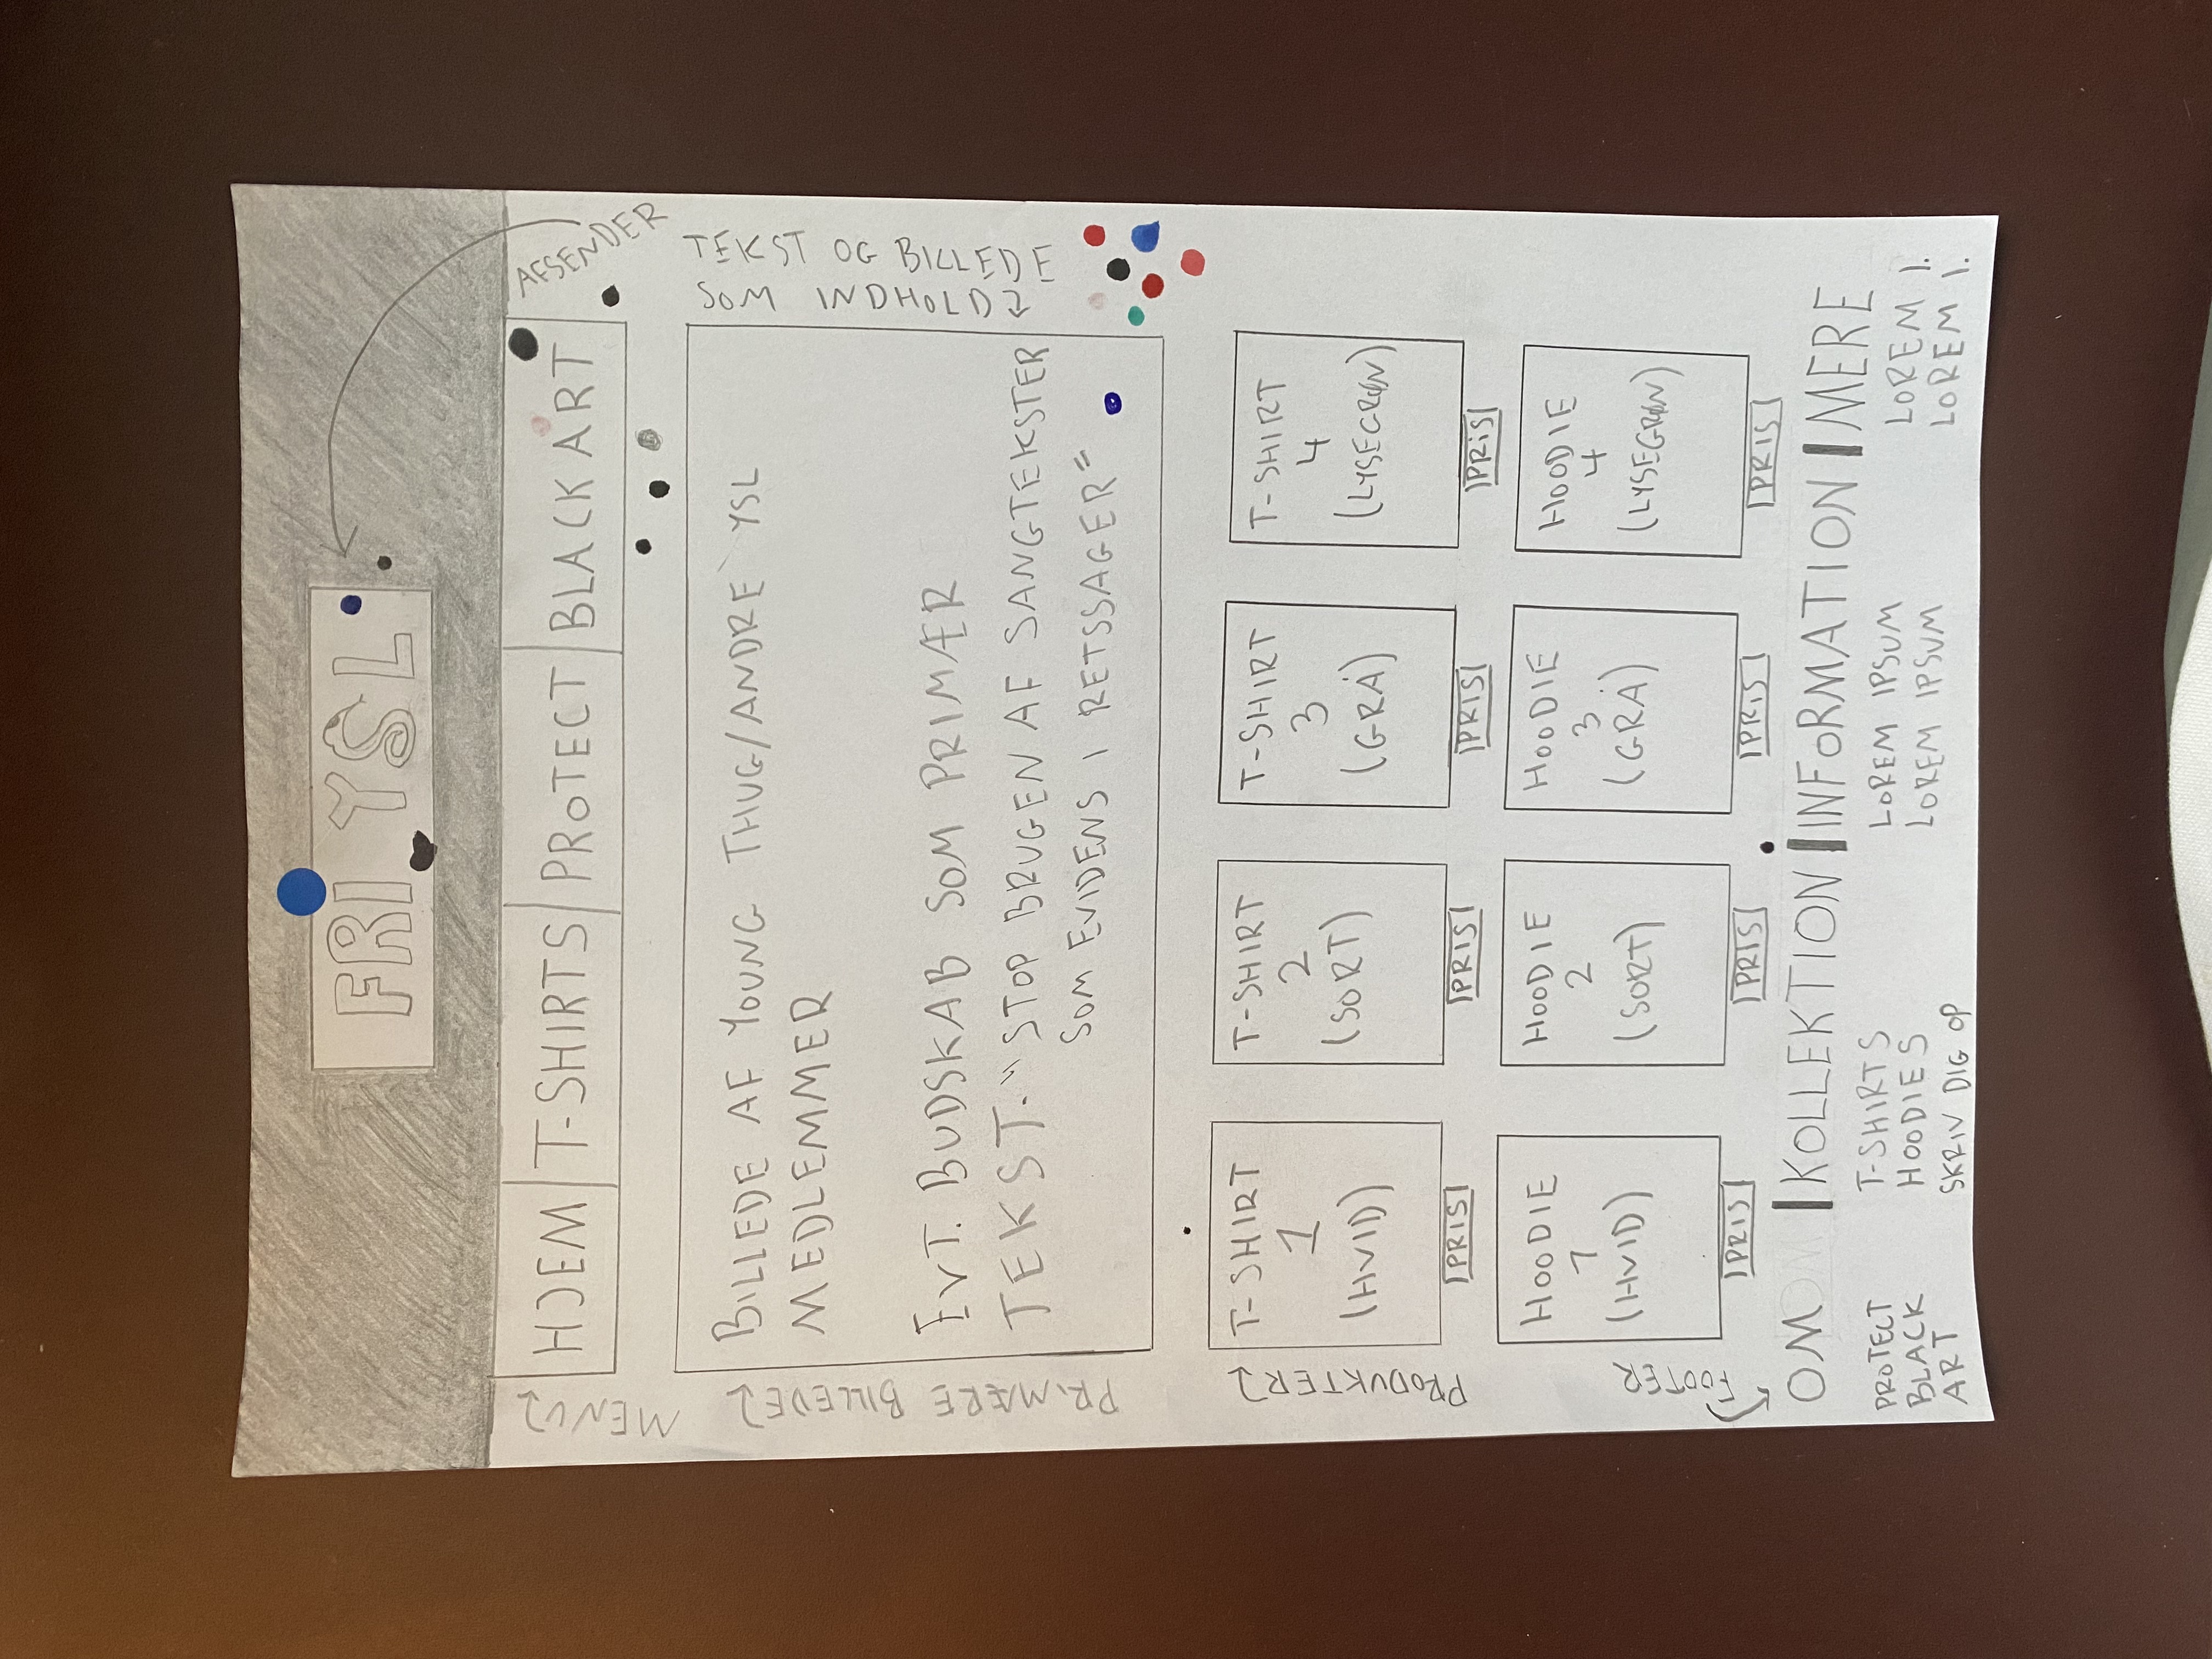 FRI YSL
AFSENDER
MENU
HJEM T-SHIRTS PROTECT BLACK ART
TEKST OG BILLEDE
SOM INDHOLD
PRIMÆRE BILLEDE
BILLEDE AF YOUNG THUG/ANDRE YSL
MEDLEMMER
EVT. BUDSKAB SOM PRIMÆR
TEKST. "STOP BRUGEN AF SANGTEKSTER
SOM EVIDENS I RETSSAGER"
PRODUKTER
T-SHIRT
1
(HVID)
PRIS
T-SHIRT
2
(SORT)
PRIS
T-SHIRT
3
(GRÅ)
PRIS
T-SHIRT
4
(LYSEGRØN)
PRIS
HOODIE
1
(HVID)
PRIS
HOODIE
2
(SORT)
PRIS
HOODIE
3
(GRÅ)
PRIS
HOODIE
4
(LYSEGRØN)
PRIS
FOOTER
OM KOLLEKTION INFORMATION MERE
PROTECT
BLACK
ART
T-SHIRTS
HOODIES
SKRIV DIG OP
LOREM IPSUM
LOREM IPSUM
LOREM I.
LOREM I.